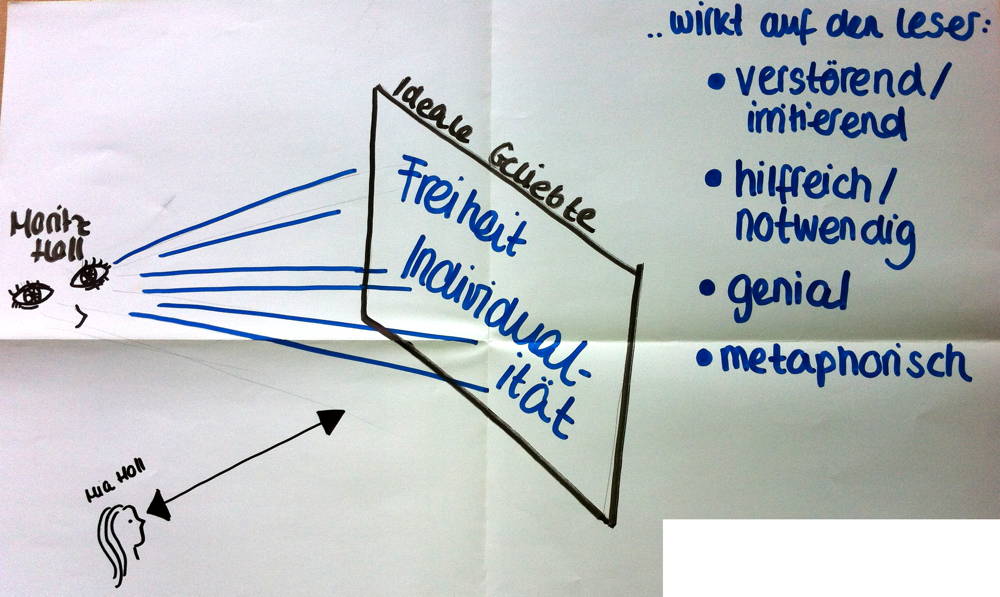 Moritz
Holl
Ideale Geliebte
Freiheit
Individual-
ität
Mia Holl
..wirkt auf den Leser:
• verstörend/
irritierend
• hilfreich/
notwendig
• genial
• metaphorisch